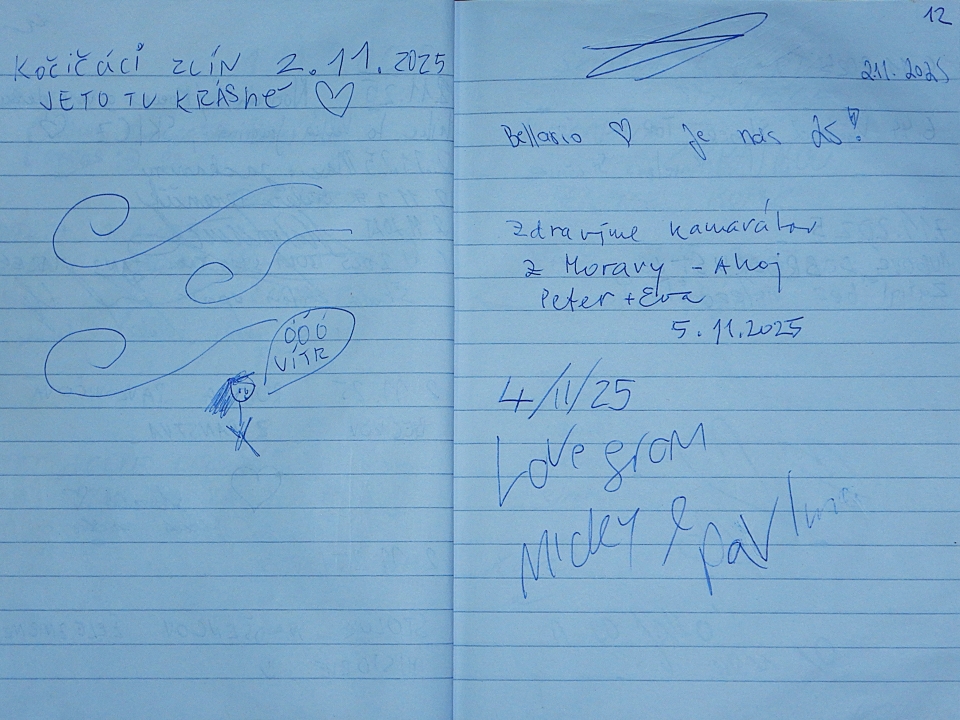 Kočičáci ZLÍN 2.11.2025
JE TO TU KRÁSNÉ ♡
ÓÓÓ
VÍTR
12
2.11.2025
Bellasio ♡ je nás 25!
Zdravíme kamarátov
z Moravy - Ahoj
Peter + Eva
5.11.2025
4/11/25
Love grom
Micky &